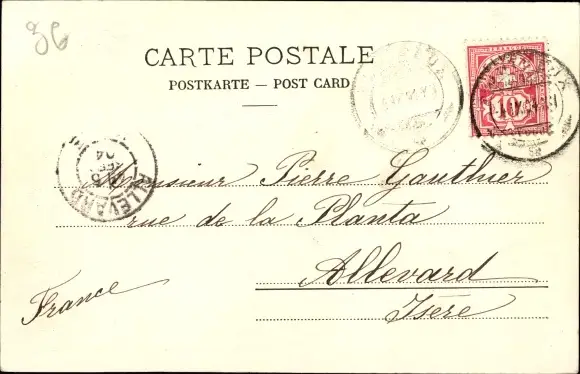 36
CARTE POSTALE
POSTKARTE — POST CARD
10
ALLEVARD
Monsieur Pierre Gauthier
rue de la Planta
Allevard
Isère
France